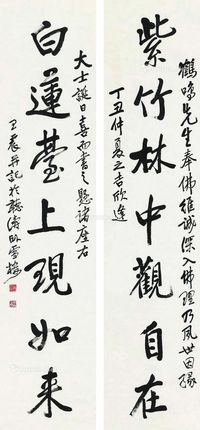 鶴鳴先生奉佛維誠深入佛理乃夙世因緣
紫竹林中觀自在
丁丑仲夏之吉欣逢
大士誕日喜而書之懸諸座右
白蓮臺上現如来
王震并記於海